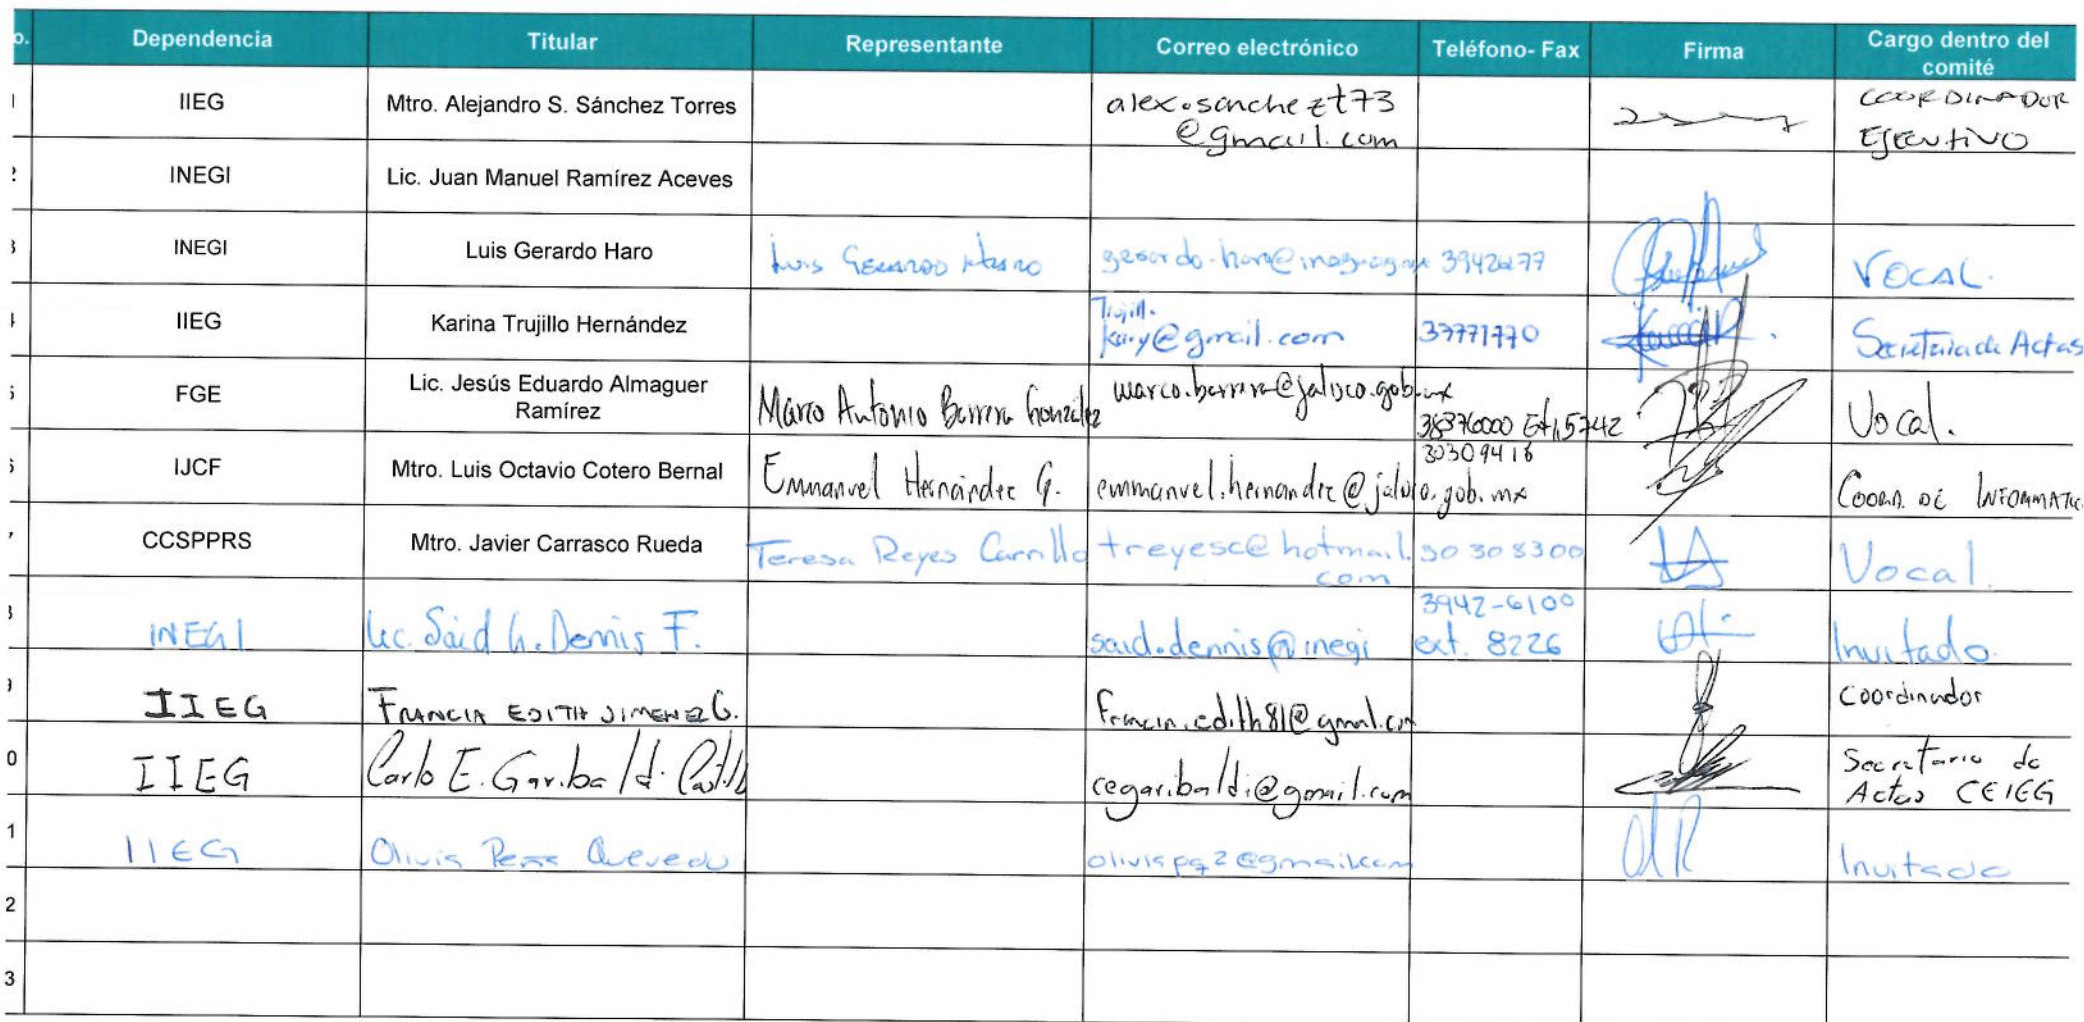 o. Dependencia Titular Representante Correo electrónico Teléfono- Fax Firma Cargo dentro del
comité
1 IIEG Mtro. Alejandro S. Sánchez Torres alex.sanchezt73 COORDINADOR
@gmail.com EJECUTIVO
2 INEGI Lic. Juan Manuel Ramírez Aceves
3 INEGI Luis Gerardo Haro Luis GERARDO HARO VOCAL.
4 IIEG Karina Trujillo Hernández Trujill.
kary@gmail.com 37771770 Secretaria de Actas
5 FGE Lic. Jesús Eduardo Almaguer
Ramírez Marco Antonio Barrera González marco.barrera@jalisco.gob.mx
38376000 Ext,5742 Vocal.
6 IJCF Mtro. Luis Octavio Cotero Bernal Emmanuel Hernández G. emmanuel.hernandez@jalisco.gob.mx 30309418 COORD. DE INFORMATIC
7 CCSPPRS Mtro. Javier Carrasco Rueda Teresa Reyes Carrillo treyesc@hotmail. 30308300 Vocal.
com
8 INEGI Lic. Said h. Dennis F. said.dennis@inegi 3942-6100
ext. 8226 Invitado.
9 IIEG FRANCIA EDITH JIMENEZ G. francia.edith81@gmail.com Coordinador
0 IIEG Carlo E. Garibaldi Castillo cegaribaldi@gmail.com Secretario de
Actas CEIEG
1 IIEG Olivia Peña Quevedo oliviapq2@gmail.com Invitado
2
3